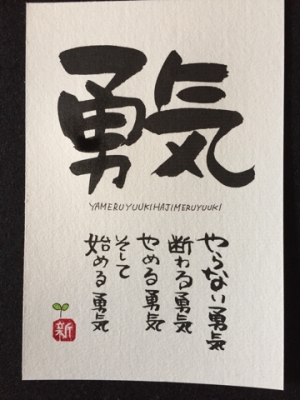 勇気
YAMERUYUUKIHAJIMERUYUUKI
やらない勇気
断わる勇気
やめる勇気
そして
始める勇気
新